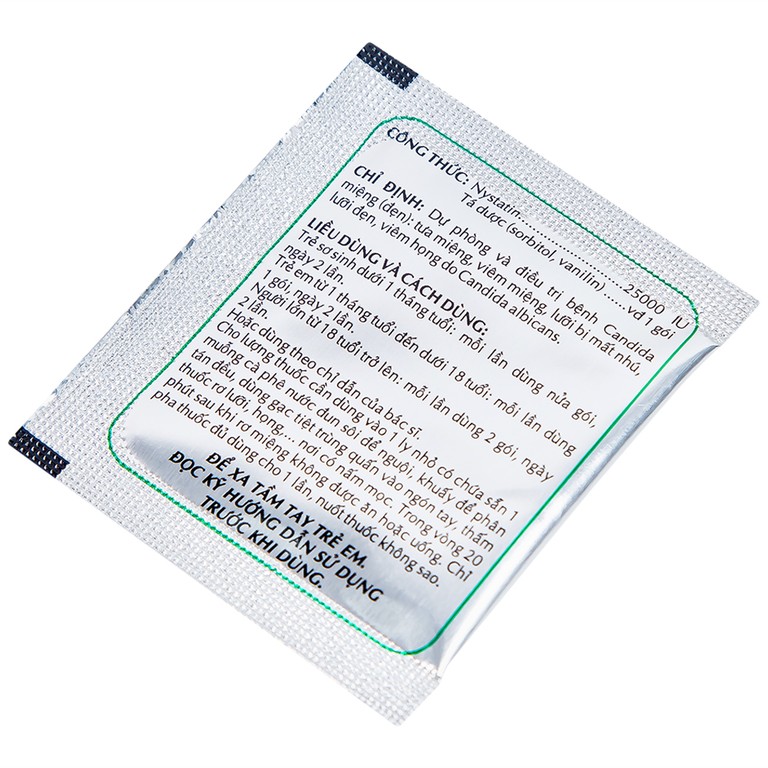 CÔNG THỨC: Nystatin.......................25000 IU
Tá dược (sorbitol, vanilin) .....vđ 1 gói
CHỈ ĐỊNH: Dự phòng và điều trị bệnh Candida
miệng (đẹn): tưa miệng, viêm miệng, lưỡi bị mất nhú,
lưỡi đen, viêm họng do Candida albicans.
LIỀU DÙNG VÀ CÁCH DÙNG:
Trẻ sơ sinh dưới 1 tháng tuổi: mỗi lần dùng nửa gói,
ngày 2 lần.
Trẻ em từ 1 tháng tuổi đến dưới 18 tuổi: mỗi lần dùng
1 gói, ngày 2 lần.
Người lớn từ 18 tuổi trở lên: mỗi lần dùng 2 gói, ngày
2 lần.
Hoặc dùng theo chỉ dẫn của bác sĩ.
Cho lượng thuốc cần dùng vào 1 ly nhỏ có chứa sẵn 1
muỗng cà phê nước đun sôi để nguội, khuấy để phân
tán đều, dùng gạc tiệt trùng quấn vào ngón tay, thấm
thuốc rơ lưỡi, họng... nơi có nấm mọc. Trong vòng 20
phút sau khi rơ miệng không được ăn hoặc uống. Chỉ
pha thuốc đủ dùng cho 1 lần, nuốt thuốc không sao.
ĐỂ XA TẦM TAY TRẺ EM.
ĐỌC KỸ HƯỚNG DẪN SỬ DỤNG
TRƯỚC KHI DÙNG.